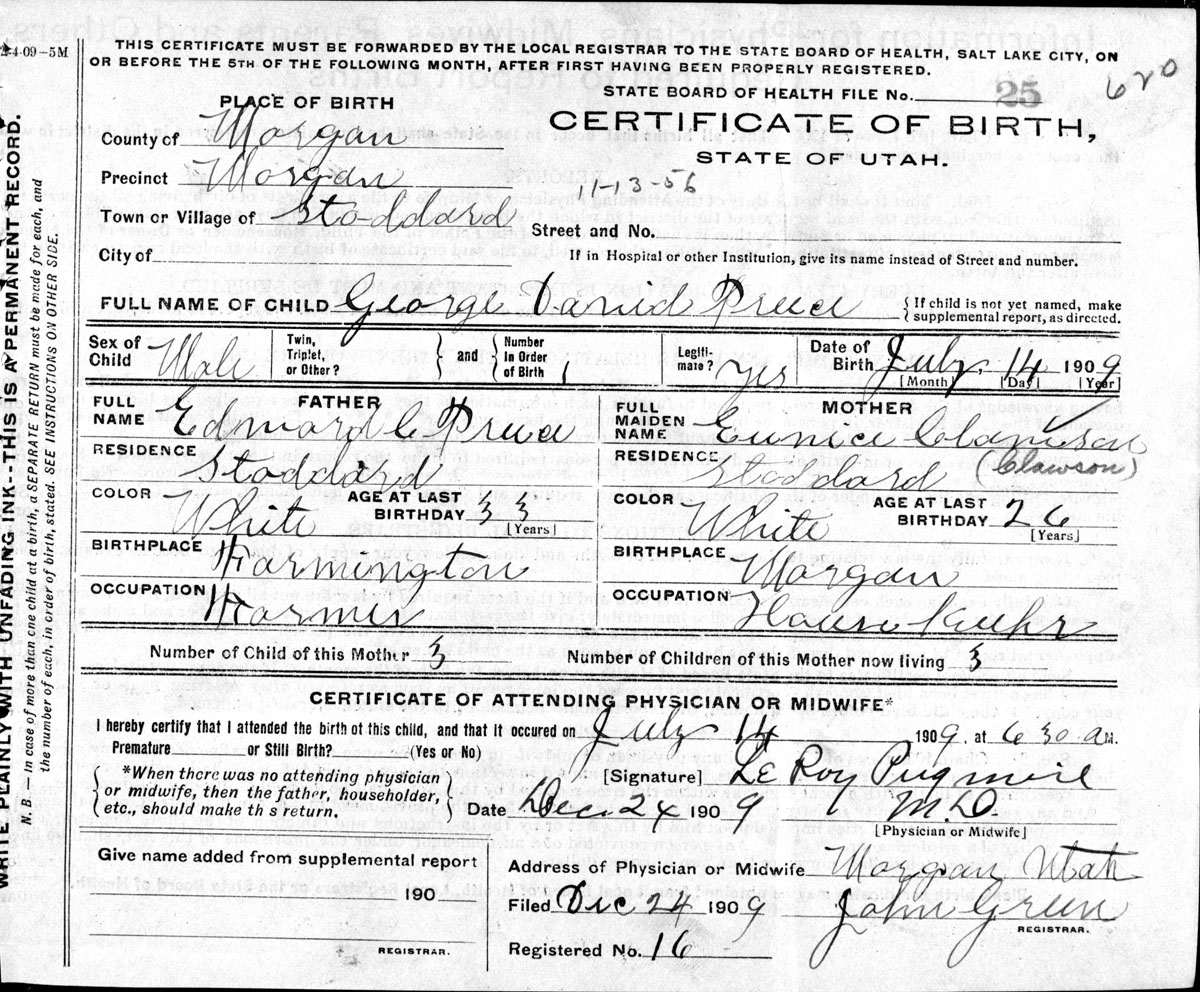 2-4-09-5M
THIS CERTIFICATE MUST BE FORWARDED BY THE LOCAL REGISTRAR TO THE STATE BOARD OF HEALTH, SALT LAKE CITY, ON
OR BEFORE THE 5TH OF THE FOLLOWING MONTH, AFTER FIRST HAVING BEEN PROPERLY REGISTERED.
STATE BOARD OF HEALTH FILE No. 25 620
PLACE OF BIRTH
CERTIFICATE OF BIRTH,
STATE OF UTAH.
County of Morgan
Precinct Morgan
11-13-56
Town or Village of Stoddard
Street and No.
City of
If in Hospital or other Institution, give its name instead of Street and number.
FULL NAME OF CHILD George David Preece { If child is not yet named, make supplemental report, as directed.
Sex of Child Male
Twin, Triplet, or Other? } and { Number in Order of Birth 1
Legitimate? yes
Date of Birth July 14 1909
[Month] [Day] [Year]
FATHER
FULL NAME Edward C Preece
RESIDENCE Stoddard
COLOR White AGE AT LAST BIRTHDAY 33 [Years]
BIRTHPLACE Farmington
OCCUPATION Farmer
MOTHER
FULL MAIDEN NAME Eunice Clawson
(Clawson)
RESIDENCE Stoddard
COLOR White AGE AT LAST BIRTHDAY 26 [Years]
BIRTHPLACE Morgan
OCCUPATION House Keeper
Number of Child of this Mother 3 Number of Children of this Mother now living 3
CERTIFICATE OF ATTENDING PHYSICIAN OR MIDWIFE*
I hereby certify that I attended the birth of this child, and that it occured on July 14 1909, at 6 30 A M.
Premature or Still Birth? (Yes or No)
{ *When there was no attending physician
or midwife, then the father, householder,
etc., should make this return. }
[Signature] Le Roy Pugmire
Date Dec. 24 1909 M.D.
[Physician or Midwife]
Give name added from supplemental report
190
REGISTRAR.
Address of Physician or Midwife Morgan Utah
Filed Dec 24 1909 John Green
REGISTRAR.
Registered No. 16
WRITE PLAINLY WITH UNFADING INK--THIS IS A PERMANENT RECORD.
N. B.—In case of more than one child at a birth, a SEPARATE RETURN must be made for each, and
the number of each, in order of birth, stated. SEE INSTRUCTIONS ON OTHER SIDE.